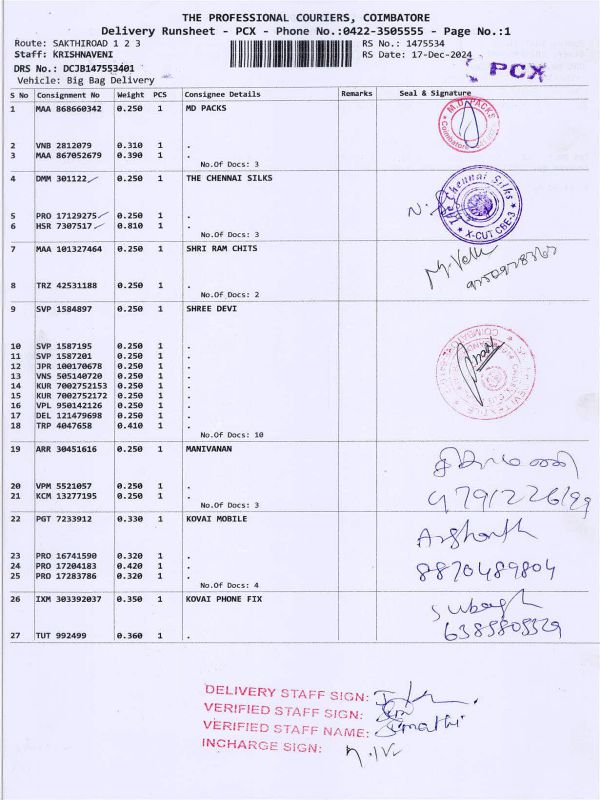 THE PROFESSIONAL COURIERS, COIMBATORE
Delivery Runsheet - PCX - Phone No.:0422-3505555 - Page No.:1
Route: SAKTHIROAD 1 2 3 RS No.: 1475534
Staff: KRISHNAVENI RS Date: 17-Dec-2024
DRS No.: DCJB147553401 PCX
Vehicle: Big Bag Delivery
S No Consignment No Weight PCS Consignee Details Remarks Seal & Signature
1 MAA 868660342 0.250 1 MD PACKS
M.D. PACKS
Coimbatore
2 VNB 2812079 0.310 1 .
3 MAA 867052679 0.390 1 .
No.Of Docs: 3
4 DMM 301122 0.250 1 THE CHENNAI SILKS
The Chennai Silks
X-CUT CBE-3
5 PRO 17129275 0.250 1 .
6 HSR 7307517 0.810 1 .
No.Of Docs: 3
7 MAA 101327464 0.250 1 SHRI RAM CHITS
8 TRZ 42531188 0.250 1 .
No.Of Docs: 2
9 SVP 1584897 0.250 1 SHREE DEVI
10 SVP 1587195 0.250 1 .
11 SVP 1587201 0.250 1 .
12 JPR 100170678 0.250 1 .
13 VNS 505140720 0.250 1 .
14 KUR 7002752153 0.250 1 .
15 KUR 7002752172 0.250 1 .
16 VPL 950142126 0.250 1 .
17 DEL 121479698 0.250 1 .
18 TRP 4047658 0.410 1 .
No.Of Docs: 10
19 ARR 30451616 0.250 1 MANIVANAN
20 VPM 5521057 0.250 1 .
21 KCM 13277195 0.250 1 .
No.Of Docs: 3
22 PGT 7233912 0.330 1 KOVAI MOBILE
23 PRO 16741590 0.320 1 .
24 PRO 17204183 0.420 1 .
25 PRO 17283786 0.320 1 .
8870489804
No.Of Docs: 4
26 IXM 303392037 0.350 1 KOVAI PHONE FIX
27 TUT 992499 0.360 1 .
DELIVERY STAFF SIGN:
VERIFIED STAFF SIGN:
VERIFIED STAFF NAME: Sumathi
INCHARGE SIGN: